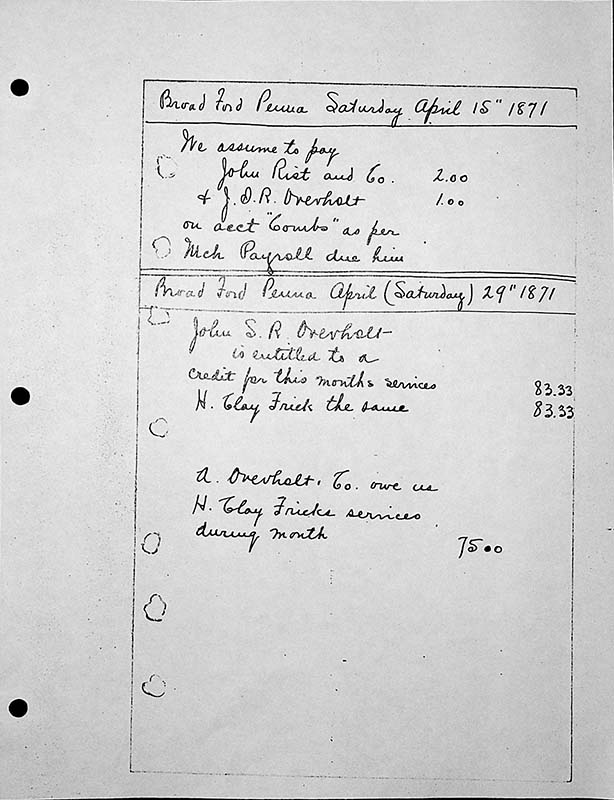 Broad Ford Penna Saturday April 15" 1871
We assume to pay
John Rist and Co. 2.00
& J.S.R. Overholt 1.00
on acct "Combs" as per
Mch Payroll due him
Broad Ford Penna April (Saturday) 29" 1871
John S. R. Overholt
is entitled to a
credit for this months services 83.33
H. Clay Frick the same 83.33
A. Overholt, Co. owe us
H. Clay Fricks services
during month 75.00